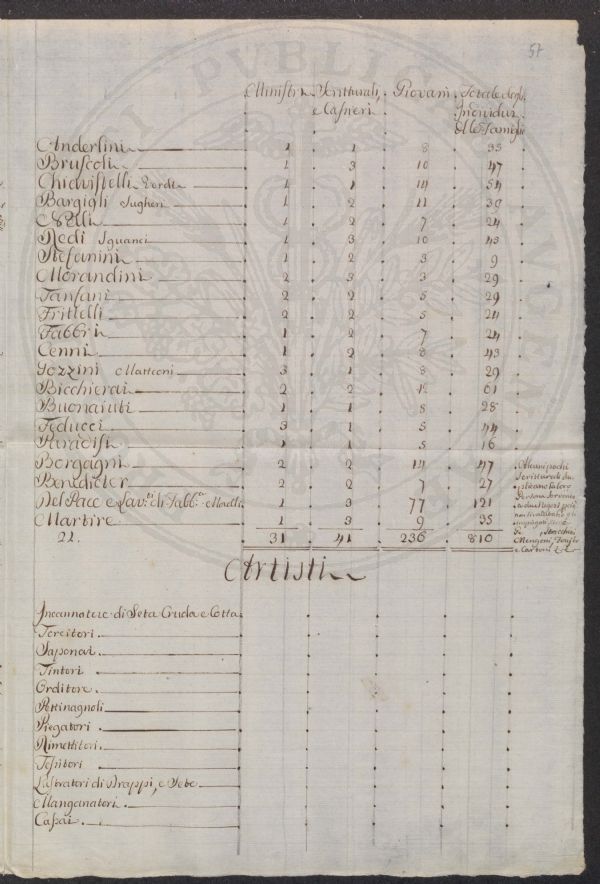 57
Ministri Scritturali, e Casieri Giovani Totale degl' Individui delle Famiglie
Anderlini 1 1 8 35
Bruscoli 1 3 10 47
Chiavistelli Verdi 1 1 14 54
Bargigli Sugheri 1 2 11 30
1 2 7 24
Redi Sguanci 1 3 10 43
Stefanini 1 2 3 9
Morandini 2 3 3 29
Fanfani 2 2 5 29
Frittelli 2 2 5 24
Fabbri 1 2 7 24
Cenni 1 2 8 43
Gozzini Matteoni 3 1 8 29
Bicchierai 2 2 12 61
Buonaiuti 1 1 8 28
Feducci 3 1 5 44
Paradisi 1 1 5 16
Borgagni 2 2 14 47
Benedicter 2 2 7 27
Del Pace e Lavti di Fabbca 1 3 77 121
Martire 1 3 9 35
22. 31 41 236 810
Alcuni pochi
Artisti
Incannatore di Seta Cruda e Cotta
Torcitori
Saponai
Tintori
Orditore
Pettinagnoli
Piegatori
Rimettitori
Tessitori
Lustratori di Drappi, e Sete
Manganatori
Capai
PVBLICA